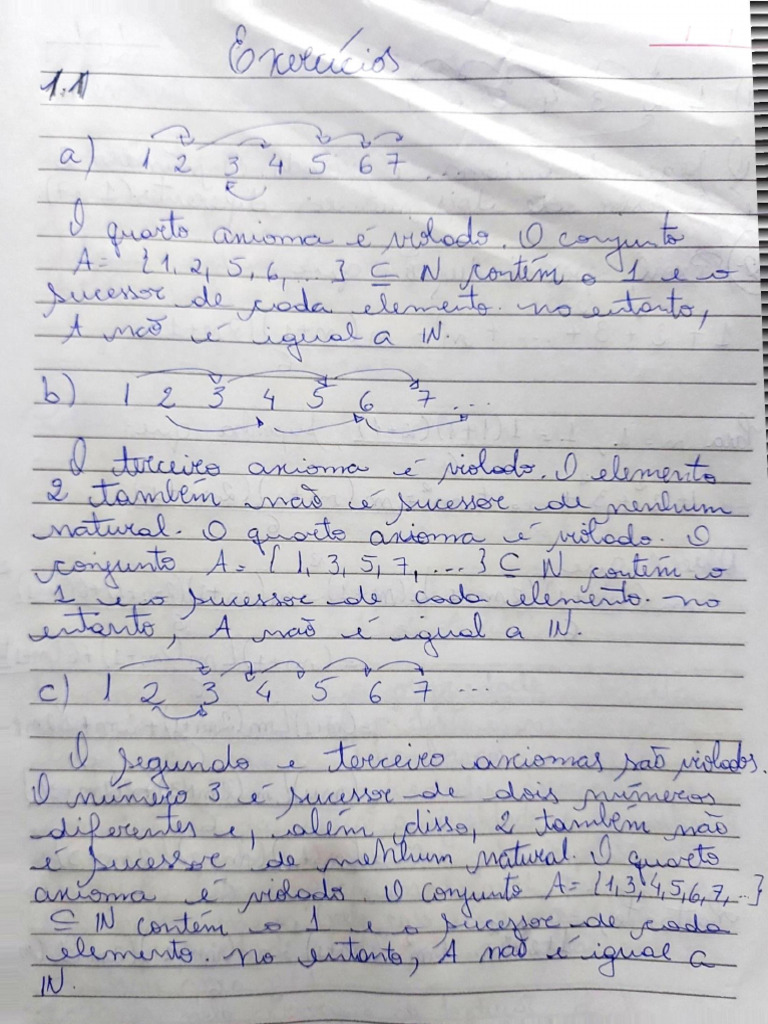 Exercícios
1.1
a) 1 2 3 4 5 6 7 ...
O quarto axioma é violado. O conjunto
A = {1, 2, 5, 6, ...} ⊆ N contém o 1 e o
sucessor de cada elemento. no entanto,
A não é igual a IN.
b) 1 2 3 4 5 6 7 ...
O terceiro axioma é violado. O elemento
2 também não é sucessor de nenhum
natural. O quarto axioma é violado. O
conjunto A = {1, 3, 5, 7, ...} ⊆ N contém o
1 e o sucessor de cada elemento. no
entanto, A não é igual a IN.
c) 1 2 3 4 5 6 7 ...
O segundo e terceiro axiomas são violados.
O número 3 é sucessor de dois números
diferentes e, além disso, 2 também não
é sucessor de nenhum natural. O quarto
axioma é violado. O conjunto A = {1,3,4,5,6,7,...}
⊆ IN contém o 1 e o sucessor de cada
elemento. no entanto, A não é igual a
IN.